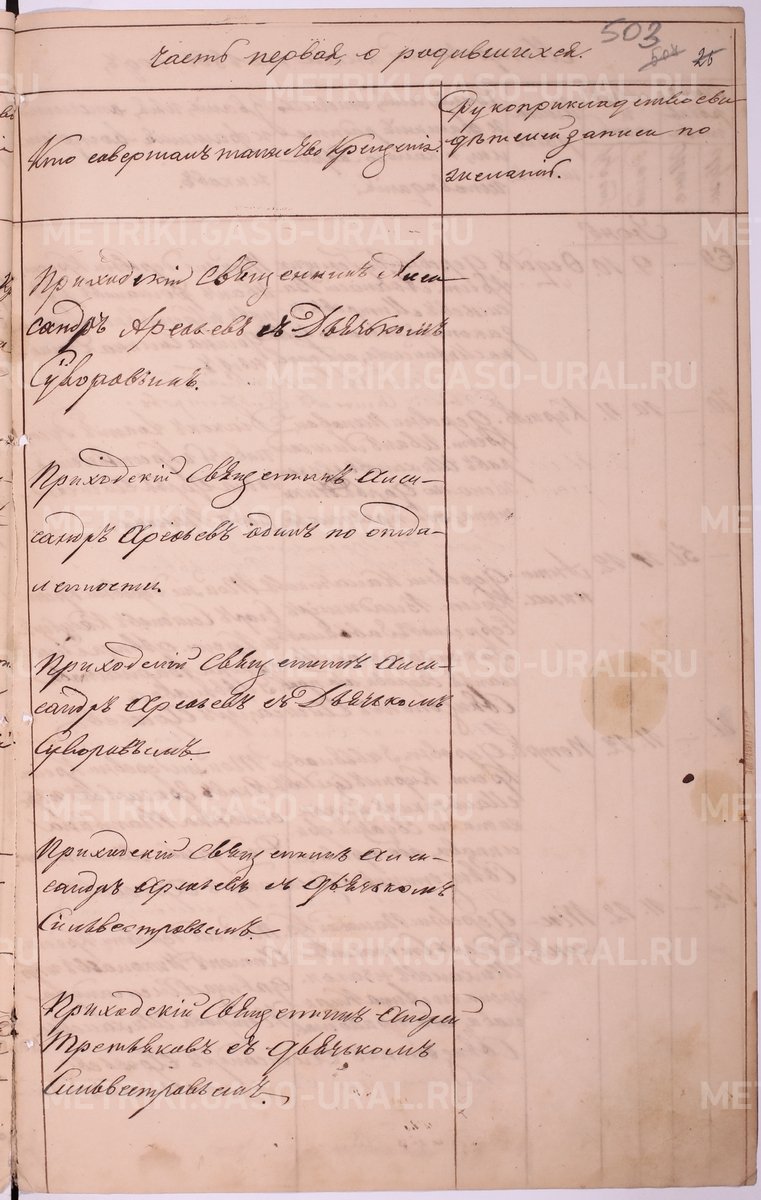 503
25
часть первая, о родившихся.
Кто совершалъ таинство Крещенія.
Рукоприкладство сви
дѣтелей записи по
желанію.
Приходскій Священникъ Алек
сандръ Арефьевъ съ Дьячкомъ
Суворовымъ.
Приходскій Священникъ Алек-
сандръ Арефьевъ одинъ по отда-
ленности.
Приходскій Священникъ Алек-
сандръ Арефьевъ съ Дьячкомъ
Суворовымъ.
Приходскій Священникъ Алек-
сандръ Арефьевъ съ дьячкомъ
Сильвестровымъ.
Приходскій Священникъ Андрей
Третьяковъ съ дьячкомъ
Сильвестровымъ.
METRIKI.GASO-URAL.RU